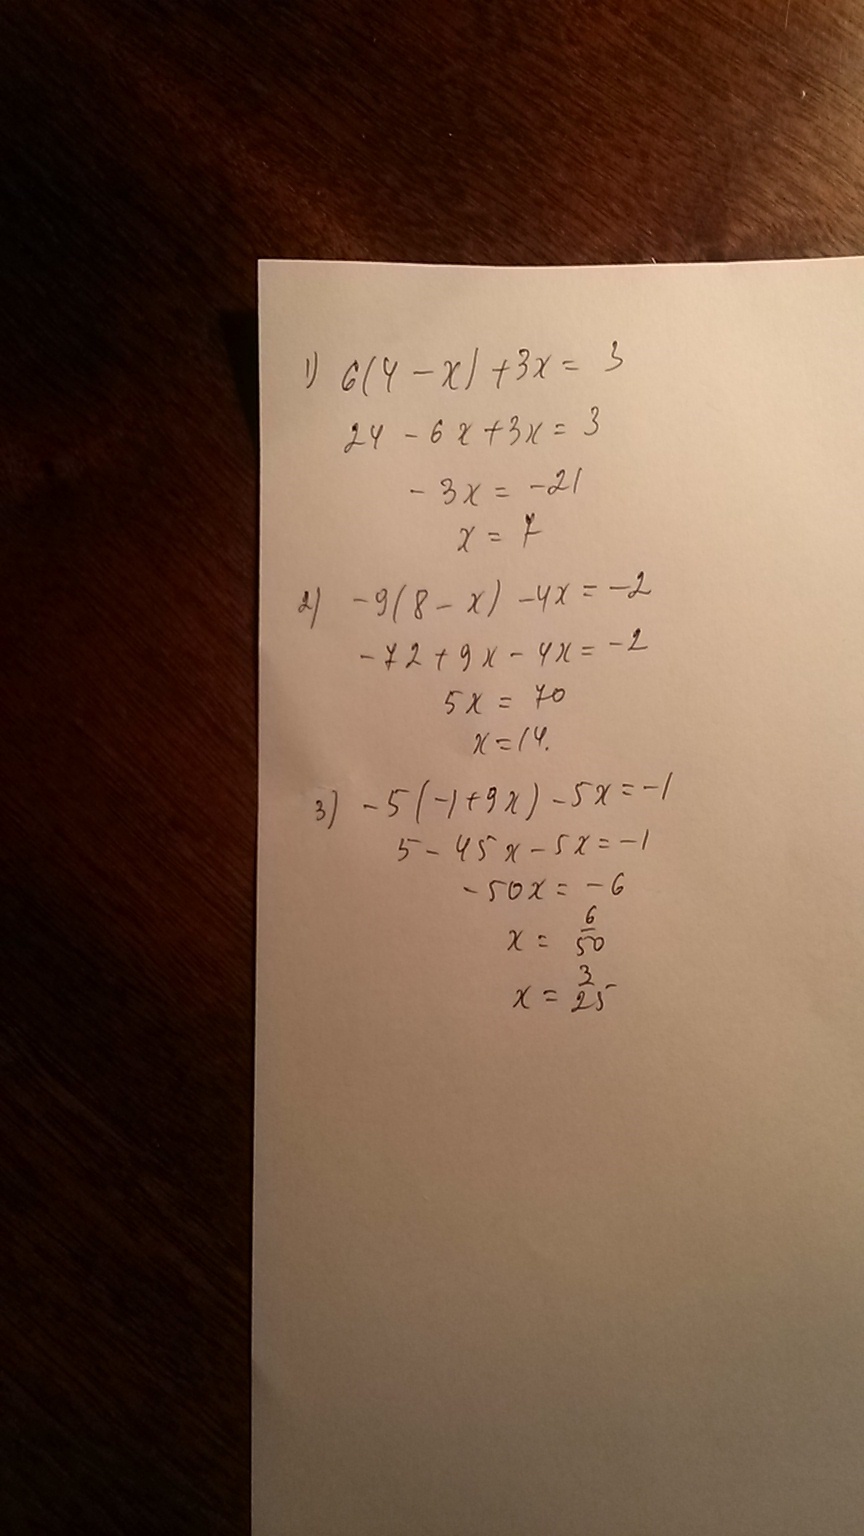 1) 6(4 - x) + 3x = 3
24 - 6x + 3x = 3
- 3x = -21
x = 7
2) -9(8 - x) - 4x = -2
-72 + 9x - 4x = -2
5x = 70
x = 14.
3) -5(-1 + 9x) - 5x = -1
5 - 45x - 5x = -1
-50x = -6
x = 6/50
x = 3/25